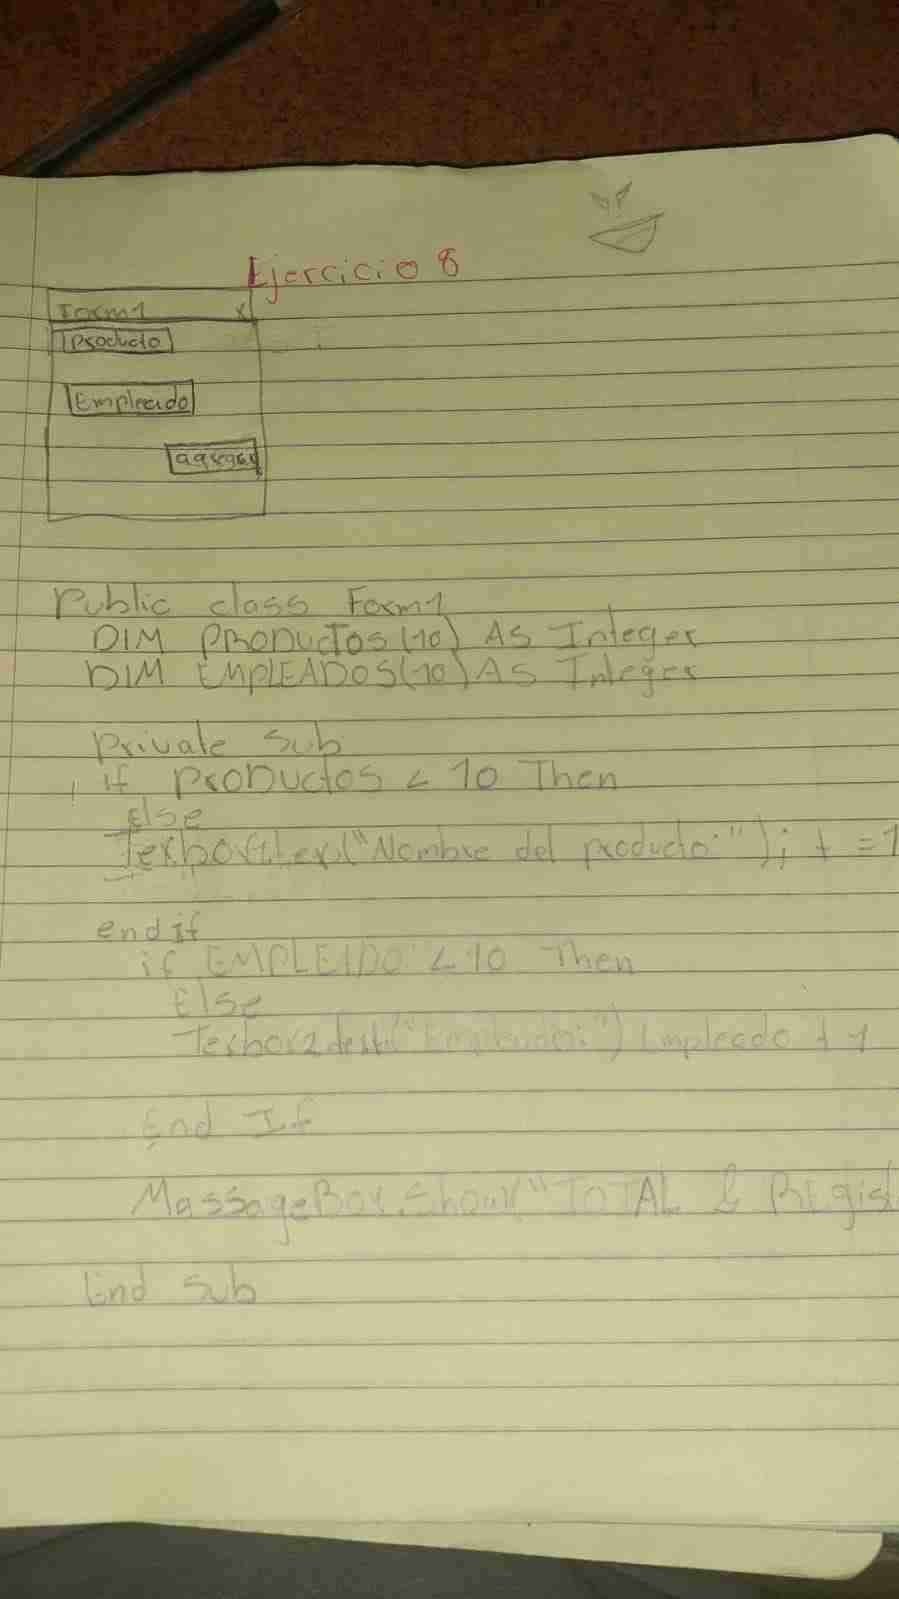 Ejercicio 8
Form1 X
Producto
Empleado
agregar
Public class Form1
DIM PRODUCTOS(10) AS Integer
DIM EMPLEADOS(10) AS Integer
Private Sub
if PRODUCTOS < 10 Then
Else
("Nombre del producto:"); + = 1
end if
if EMPLEADO < 10 Then
Else
("Empleado:") Empleado + 1
End If
MassageBox.Show("TOTAL & REgist
End Sub